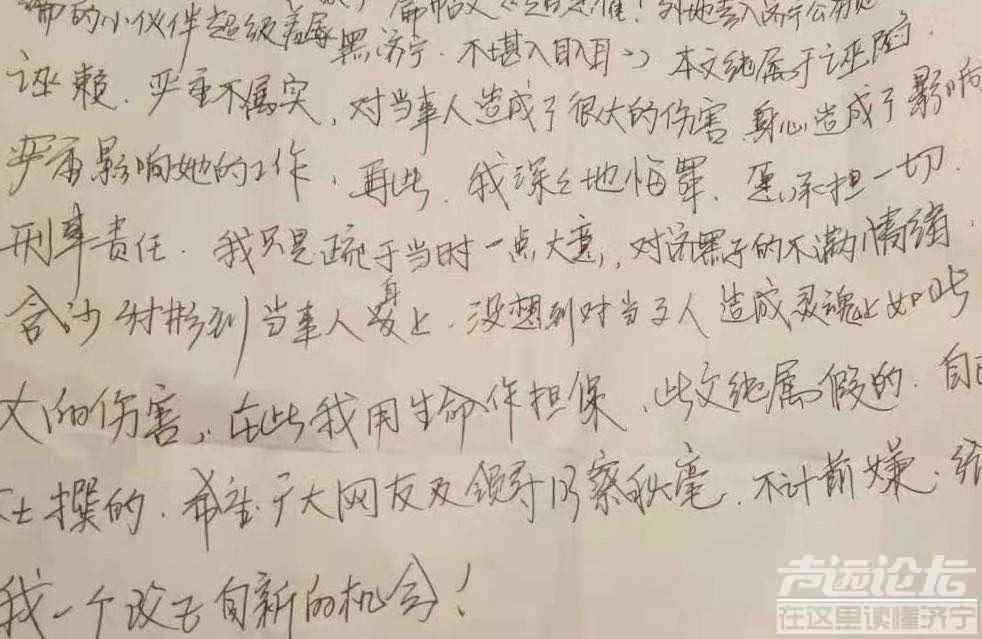 部的小伙伴超级羞辱黑济宁.不堪入目入耳>>本文纯属于诬陷.
诬赖.严重不属实,对当事人造成了很大的伤害.身心造成了影响
严重影响她的工作、再此.我深深地悔罪.愿承担一切.
刑事责任.我只是疏于当时一点大意,对济黑子的不满情绪,
含沙射影到当事人身上.没想到对当事人造成灵魂上如此
大的伤害,在此我用生命作担保、此文纯属假的.自己
杜撰的.希望广大网友及领导明察秋毫.不计前嫌.给
我一个改过自新的机会!
声远论坛
在这里读懂济宁